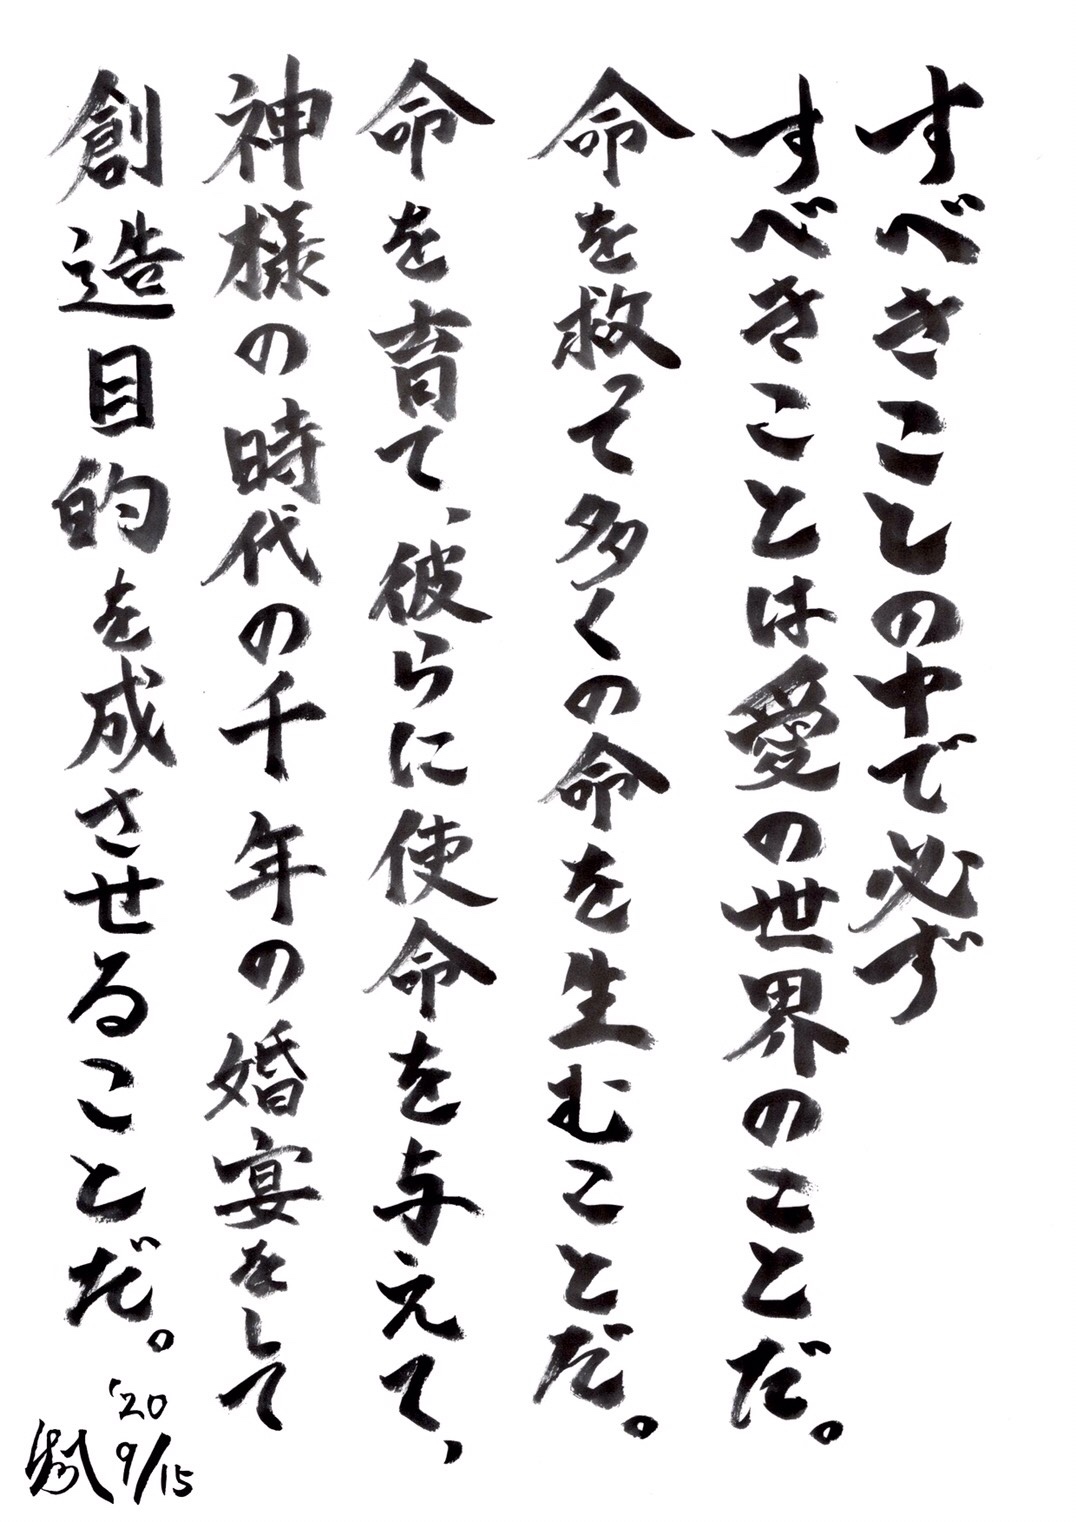 すべきことの中で必ず
すべきことは愛の世界のことだ。
命を救って多くの命を生むことだ。
命を育て、彼らに使命を与えて、
神様の時代の千年の婚宴をして
創造目的を成させることだ。
'20
9/15